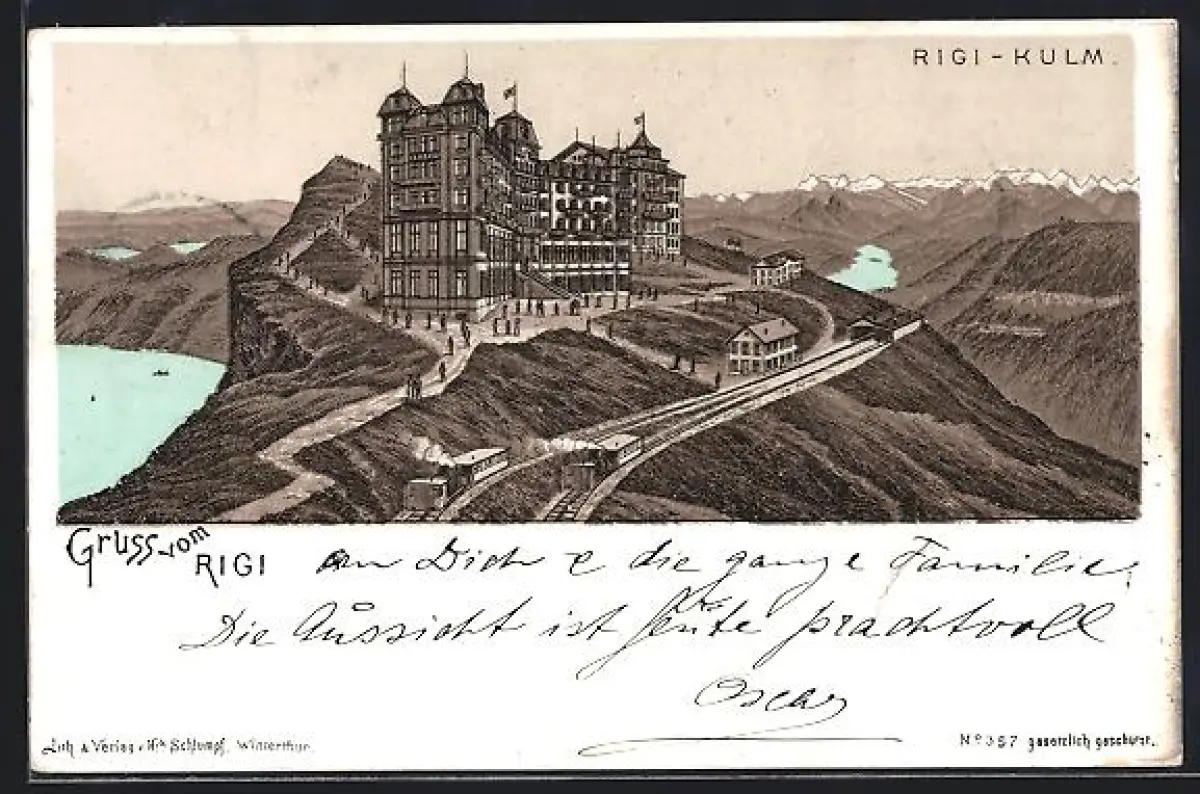 RIGI - KULM.
Gruss vom RIGI an Dich & die ganze Familie.
Die Aussicht ist heute prachtvoll
Oscar
Lith & Verlag v. Wth Schlumpf, Winterthur.
No 357 gesetzlich geschützt.